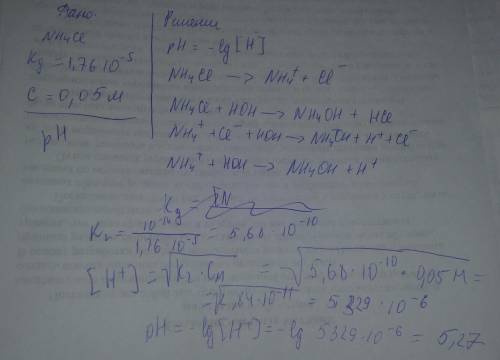 Дано:
NH₄Cl
Kд = 1,76·10⁻⁵
C = 0,05 м
pH
Решение
pH = -lg [H]
NH₄Cl —> NH₄⁺ + Cl⁻
NH₄Cl + HOH —> NH₄OH + HCl
NH₄⁺ + Cl⁻ + HOH —> NH₄OH + H⁺ + Cl⁻
NH₄⁺ + HOH —> NH₄OH + H⁺
Kг = 10⁻¹⁴ / 1,76·10⁻⁵ = 5,68·10⁻¹⁰
[H⁺] = √Kг·Cп = √5,68·10⁻¹⁰·0,05 м =
= √2,84·10⁻¹¹ = 5,329·10⁻⁶
pH = -lg [H⁺] = -lg 5,329·10⁻⁶ = 5,27